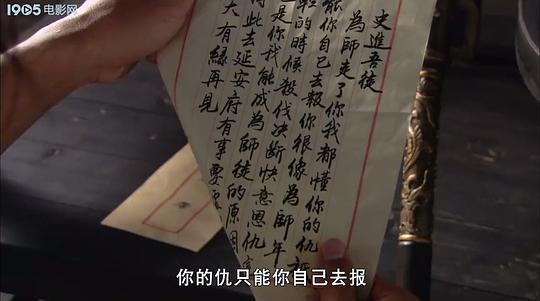 1905电影网
史進吾徒
為師走了你我都懂你的仇
能你自己去報你很像為師年
輕的時候殺伐决斷快意恩仇
是你我能成為師徒的原因
此去延安府有事要
大有緣再見
你的仇只能你自己去报